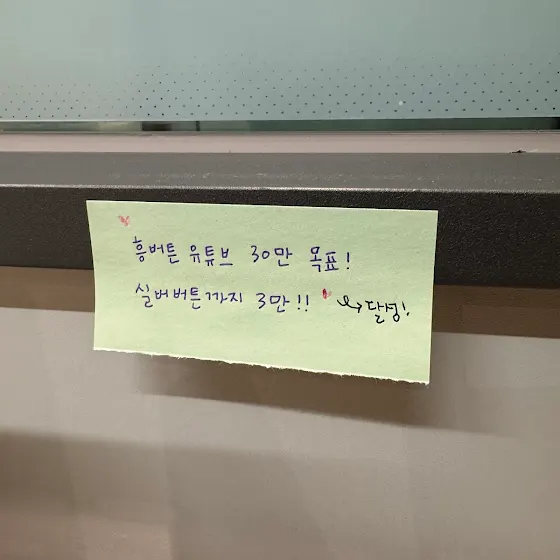 흥버튼 유튜브 30만 목표!
실버버튼까지 3만!! 달성!